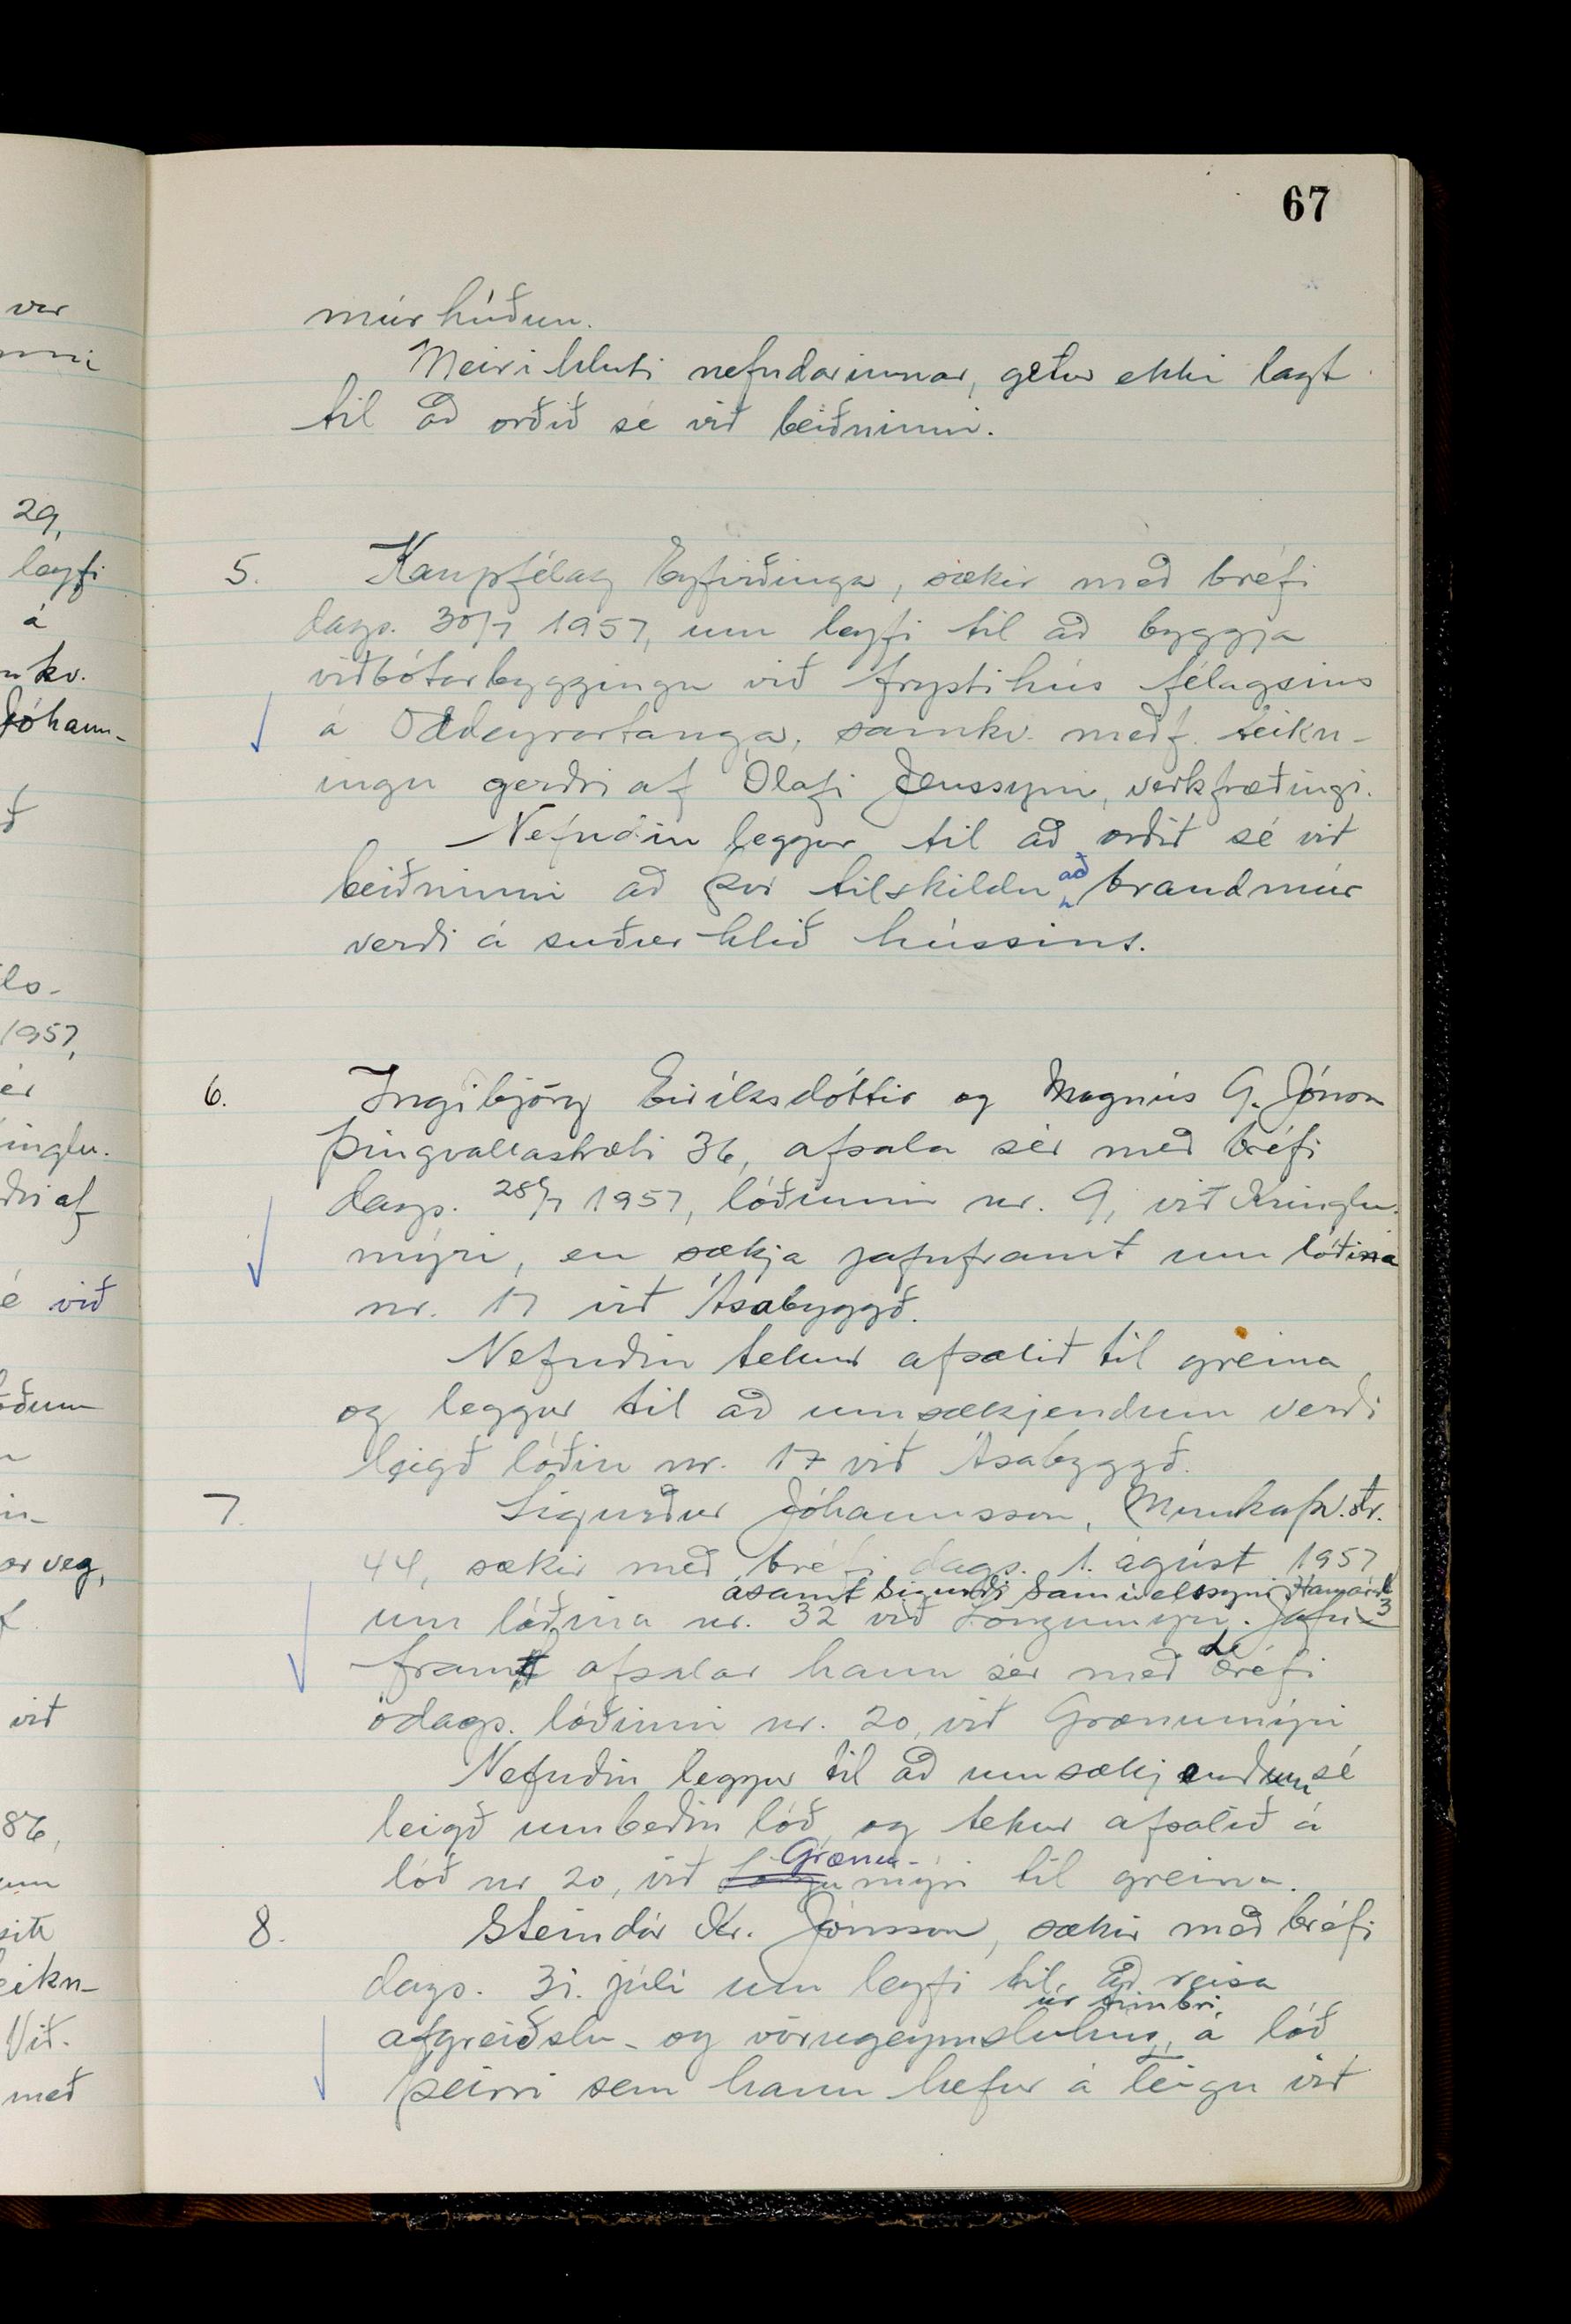 67
múrhúðun.
Meiri hluti nefndarinnar, getur ekki lagt
til að orðið sé við beiðninni.
5. Kaupfélag Eyfirðinga, sækir með bréfi
dags. 30/7 1957, um leyfi til að byggja
viðbótarbyggingu við frystihús félagsins
á Oddeyrartanga, samkv. meðf. teikn-
ingu gerðri af Ólafi Jenssyni, verkfræðingi.
Nefndin leggur til að orðið sé við
beiðninni að því tilskildu að brandmúr
verði á suðurhlið hússins.
6. Ingibjörg Eiríksdóttir og Magnús G. Jónsson
Þingvallastræti 36, afsala sér með bréfi
dags. 28/7 1957, lóðinni nr. 9, við Kringlu-
mýri, en sækja jafnframt um lóðina
nr. 17 við Ásabyggð.
Nefndin tekur afsalið til greina
og leggur til að umsækjendum verði
leigð lóðin nr. 17 við Ásabyggð.
7. Sigurður Jóhannsson, Munkaþv.str.
44, sækir með bréfi dags. 1. ágúst 1957
ásamt Sigurði Samúelssyni Hamarst 3
um lóðina nr. 32 við Löngumýri. Jafn-
framt afsalar hann sér með bréfi
ódags. lóðinni nr. 20, við Grænumýri
Nefndin leggur til að umsækjendum sé
leigð umbeðin lóð, og tekur afsalið á
lóð nr 20, við Grænu-mýri til greina.
8. Steindór Kr. Jónsson, sækir með bréfi
dags. 31. júlí um leyfi til að reisa
úr timbri,
afgreiðslu- og vörugeymsluhús, á lóð
þeirri sem hann hefur á leigu við
var
29,
leyfi
á
kv.
Jóhann-
1957,
er
inglu.
ðri af
é við
in-
ar veg,
við
86,
eikn-
Við.
með